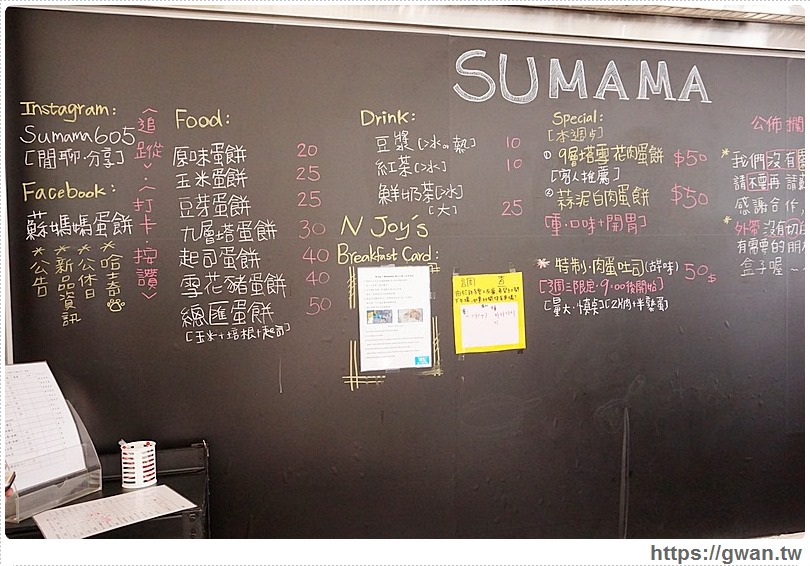 SUMAMA
Instagram:
Sumama605
[閒聊·分享]
Facebook:
蘇媽媽蛋餅
*哈奇
*公休日
*新品資訊
*公告
<追蹤><打卡·按讚>
Food:
原味蛋餅 20
玉米蛋餅 25
豆芽蛋餅 25
九層塔蛋餅 30
起司蛋餅 40
雪花豬蛋餅 40
總匯蛋餅 50
[玉米+培根+起司]
Drink:
豆漿[冰。熱] 10
紅茶[冰] 10
鮮奶茶[冰] 25
[大]
N Joy's
Breakfast Card:
Special:
[本週5]
① 9層塔雪花肉蛋餅 $50
[寫人推薦]
② 蒜泥白肉蛋餅 $50
[重·口味+開胃]
* 特制·肉蛋吐司(胡味) 50$
[3週三限定·9:00後開始]
公佈欄
*我們沒有
請不要再請
感謝合作
*外帶沒有切
有需要的朋
盒子喔~
https://gwan.tw